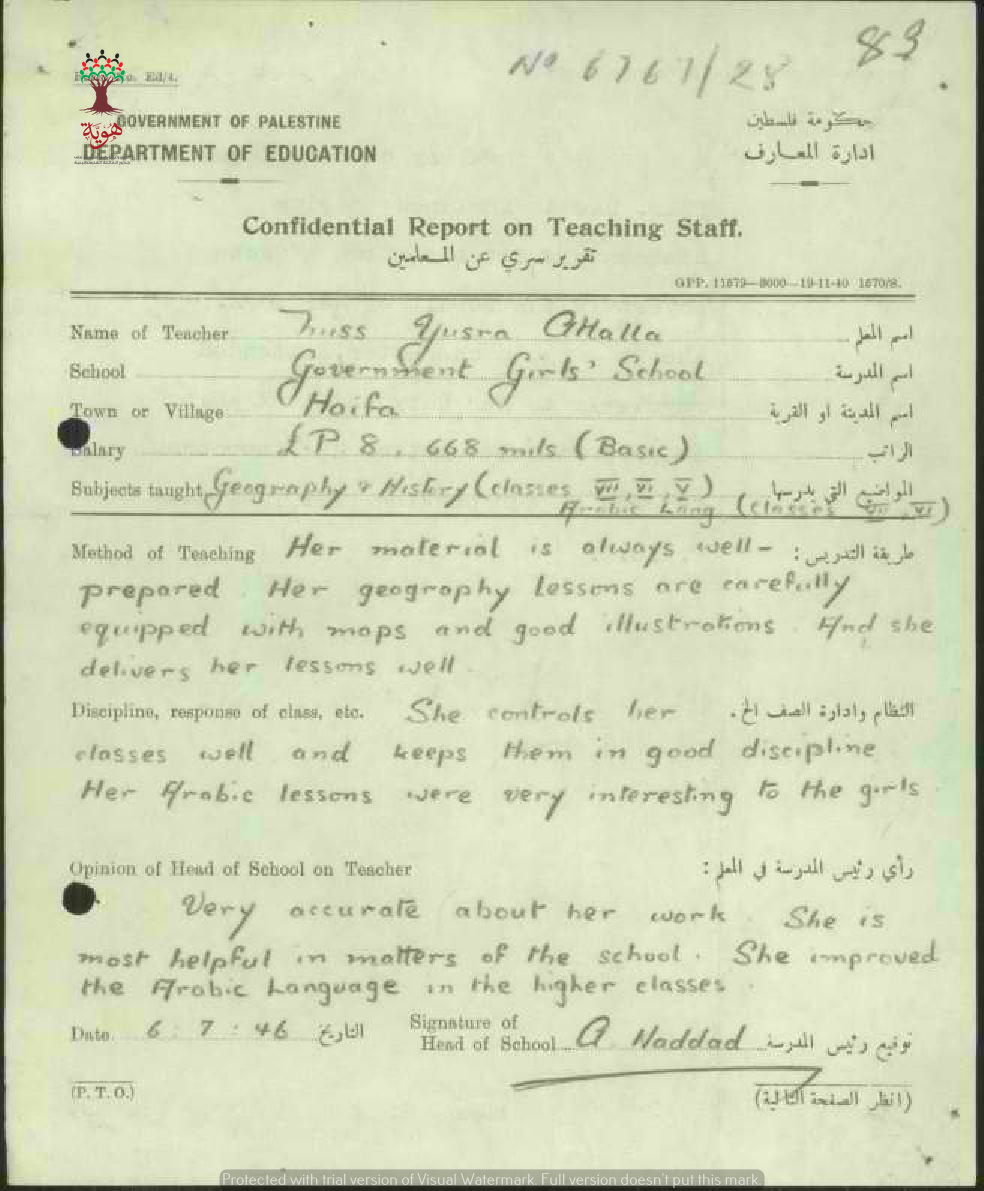 83
Nº 6767/28
Ed/4.
هوية
GOVERNMENT OF PALESTINE
حكومة فلسطين
DEPARTMENT OF EDUCATION
ادارة المعارف
Confidential Report on Teaching Staff.
تقرير سري عن المعلمين
GPP. 11879—8000—19-11-40 1670/S.
Name of Teacher Miss Yusra Atalla اسم المعلم
School Government Girls' School اسم المدرسة
Town or Village Haifa اسم المدينة او القرية
Salary £P 8 . 668 mils (Basic) الراتب
Subjects taught Geography & History (classes VII, VI, V) المواضيع التي يدرسها
Arabic Lang (classes VII, VI)
Method of Teaching Her material is always well- طريقة التدريس :
prepared. Her geography lessons are carefully
equipped with maps and good illustrations. And she
delivers her lessons well.
Discipline, response of class, etc. She controls her النظام وادارة الصف الخ.
classes well and keeps them in good discipline
Her Arabic lessons were very interesting to the girls.
Opinion of Head of School on Teacher رأي رئيس المدرسة في المعلم :
Very accurate about her work. She is
most helpful in matters of the school. She improved
the Arabic Language in the higher classes.
Date. 6 : 7 : 46 التاريخ Signature of
Head of School A Haddad توقيع رئيس المدرسة
(P. T. O.)
(انظر الصفحة التالية)
Protected with trial version of Visual Watermark. Full version doesn't put this mark.